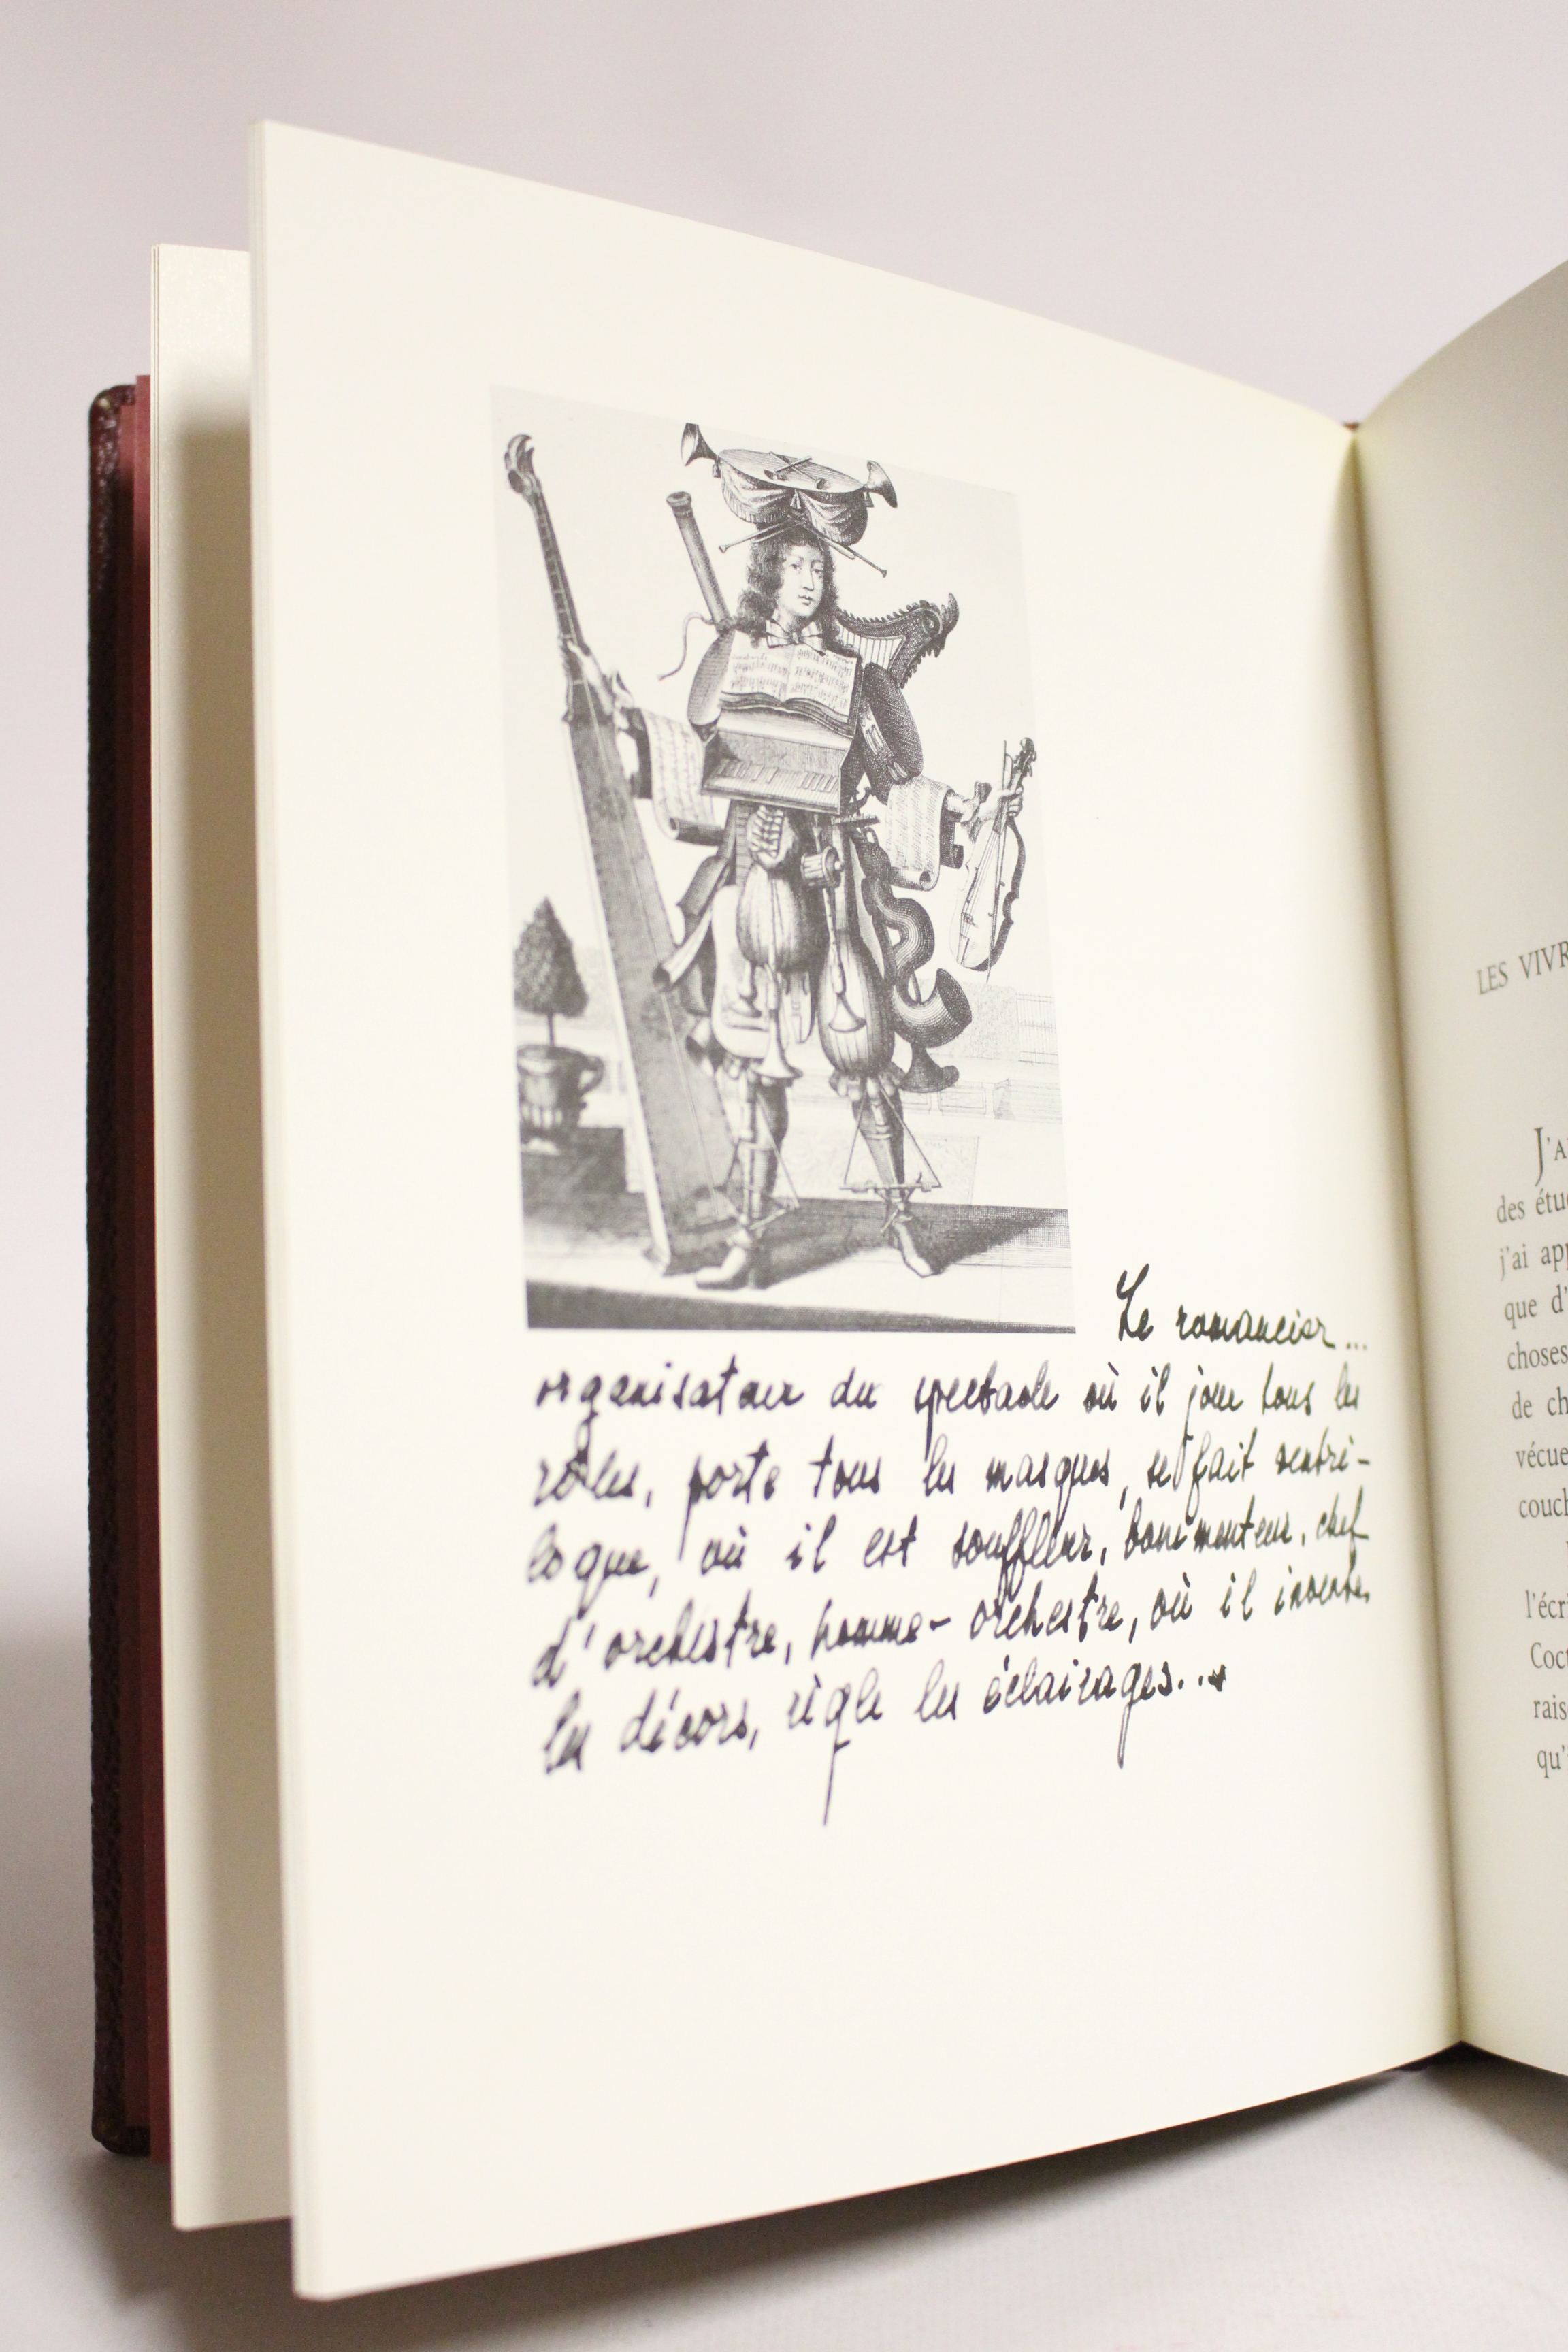 Le romancier...
organisateur du spectacle où il joue tous les
rôles, porte tous les masques, se fait ventri-
loque, où il est souffleur, bonimenteur, chef
d'orchestre, homme-orchestre, où il invente
les décors, règle les éclairages...
LES VIVR
J'A
des étu
j'ai app
que d'
choses
de ch
vécue
couch
l'écri
Coct
rais
qu'